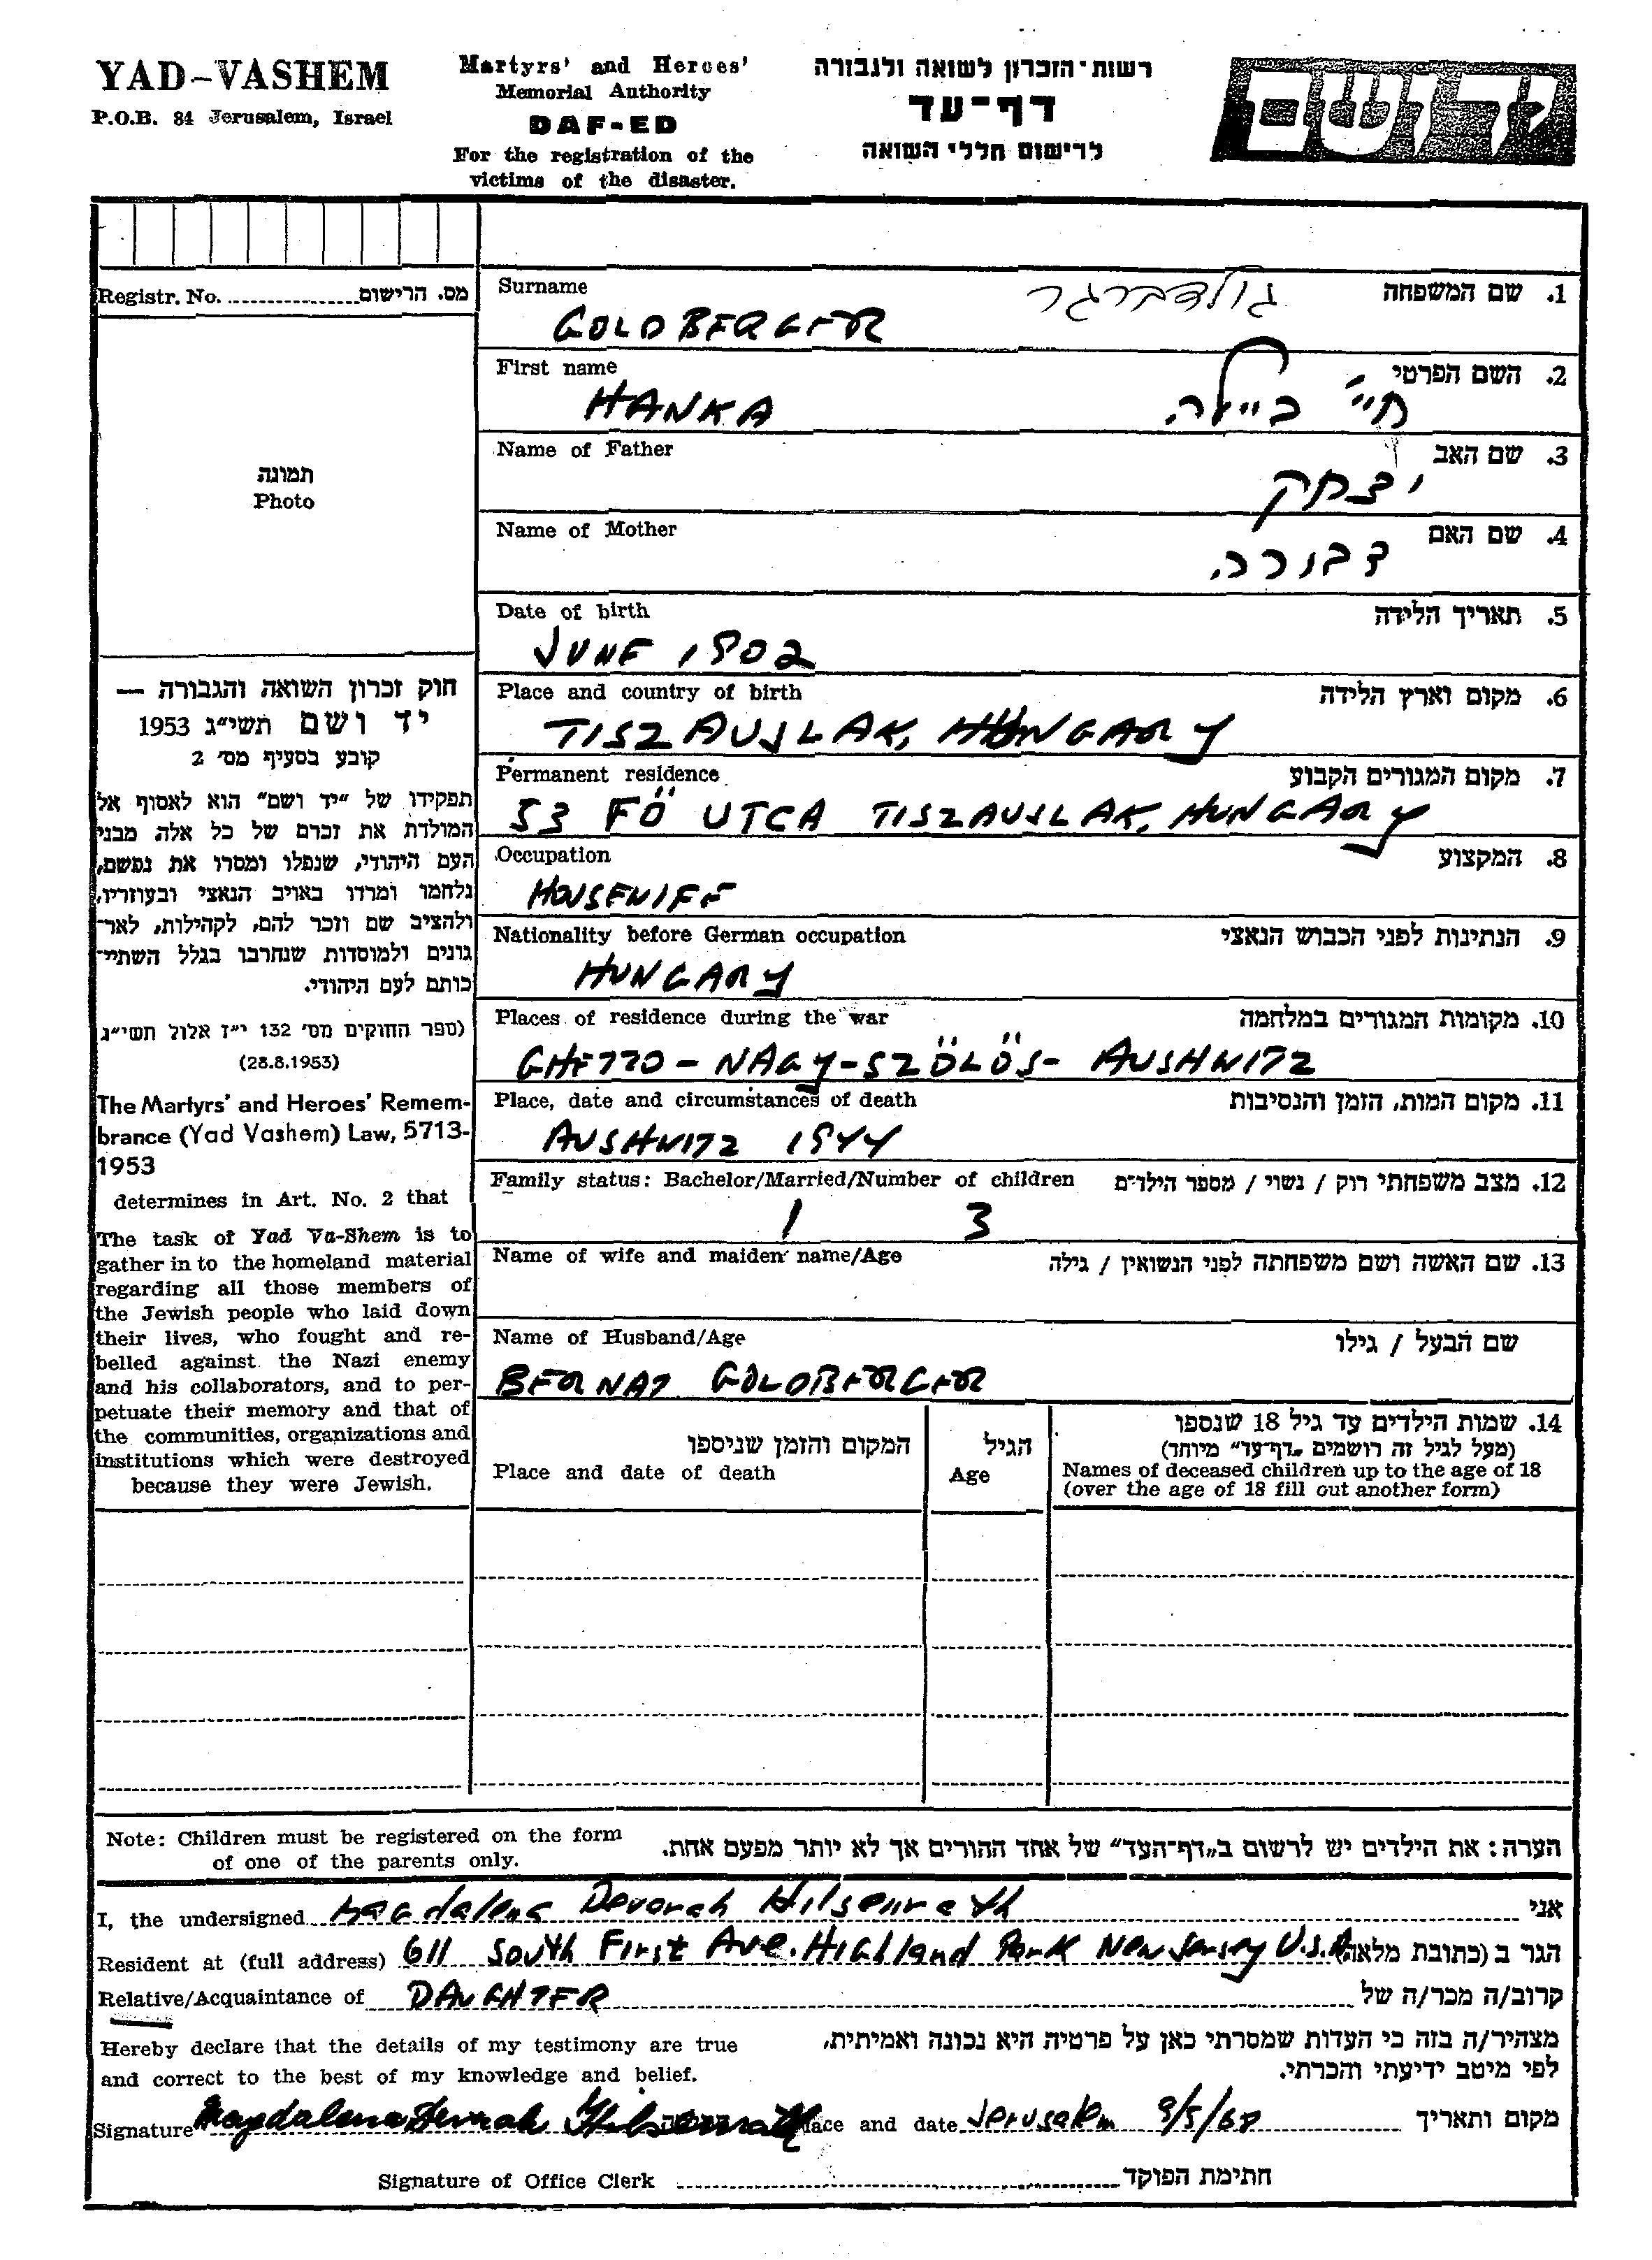 YAD-VASHEM
P.O.B. 84 Jerusalem, Israel
Martyrs' and Heroes'
Memorial Authority
DAF-ED
For the registration of the
victims of the disaster.
רשות-הזכרון לשואה ולגבורה
דף-עד
לרישום חללי השואה
יד ושם
Registr. No. מס. הרישום
תמונה
Photo
חוק זכרון השואה והגבורה —
יד ושם תשי״ג 1953
קובע בסעיף מס׳ 2
תפקידו של ״יד ושם״ הוא לאסוף אל
המולדת את זכרם של כל אלה מבני
העם היהודי, שנפלו ומסרו את נפשם,
נלחמו ומרדו באויב הנאצי ובעוזריו,
ולהציב שם וזכר להם, לקהילות, לאר-
גונים ולמוסדות שנחרבו בגלל השתיי-
כותם לעם היהודי.
(ספר החוקים מס׳ 132 י״ז אלול תשי״ג
(28.8.1953)
The Martyrs' and Heroes' Remem-
brance (Yad Vashem) Law, 5713-
1953
determines in Art. No. 2 that
The task of Yad Va-Shem is to
gather in to the homeland material
regarding all those members of
the Jewish people who laid down
their lives, who fought and re-
belled against the Nazi enemy
and his collaborators, and to per-
petuate their memory and that of
the communities, organizations and
institutions which were destroyed
because they were Jewish.
Surname 1. שם המשפחה
GOLDBERGER גולדברגר
First name 2. השם הפרטי
HANKA חי׳ ביילה
Name of Father 3. שם האב
יצחק
Name of Mother 4. שם האם
דבורה
Date of birth 5. תאריך הלידה
JUNE 1902
Place and country of birth 6. מקום וארץ הלידה
TISZAUJLAK, HUNGARY
Permanent residence 7. מקום המגורים הקבוע
53 FÖ UTCA TISZAUJLAK, HUNGARY
Occupation 8. המקצוע
HOUSEWIFE
Nationality before German occupation 9. הנתינות לפני הכבוש הנאצי
HUNGARY
Places of residence during the war 10. מקומות המגורים במלחמה
GHETTO - NAGY-SZÖLÖS - AUSHWITZ
Place, date and circumstances of death 11. מקום המות, הזמן והנסיבות
AUSHWITZ 1944
Family status: Bachelor/Married/Number of children 12. מצב משפחתי רוק / נשוי / מספר הילדים
1 3
Name of wife and maiden name/Age 13. שם האשה ושם משפחתה לפני הנשואין / גילה
Name of Husband/Age שם הבעל / גילו
BERNAT GOLDBERGER
המקום והזמן שניספו
Place and date of death
הגיל
Age
14. שמות הילדים עד גיל 18 שנספו
(מעל לגיל זה רושמים „דף-עד״ מיוחד)
Names of deceased children up to the age of 18
(over the age of 18 fill out another form)
Note: Children must be registered on the form
of one of the parents only.
הערה: את הילדים יש לרשום ב„דף-העד״ של אחד ההורים אך לא יותר מפעם אחת.
I, the undersigned Magdalena Devorah Hilsenrath אני
Resident at (full address) 611 South First Ave. Highland Park New Jersey U.S.A. הגר ב (כתובת מלאה)
Relative/Acquaintance of DAUGHTER קרוב/ה מכר/ה של
Hereby declare that the details of my testimony are true
and correct to the best of my knowledge and belief.
מצהיר/ה בזה כי העדות שמסרתי כאן על פרטיה היא נכונה ואמיתית,
לפי מיטב ידיעתי והכרתי.
Signature Magdalena Devorah Hilsenrath Place and date Jerusalem 9/5/68 מקום ותאריך
Signature of Office Clerk חתימת הפוקד